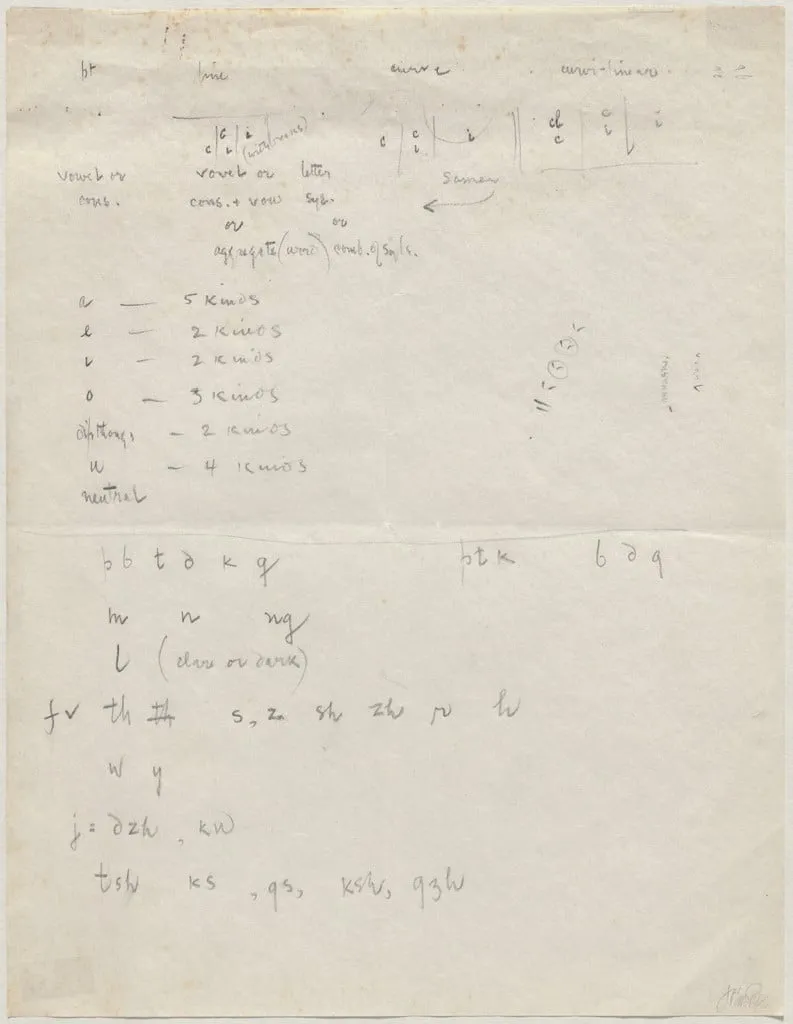 pt line curve curvi-linear
c c i i (with trans) c c i i cl c c i i
vowel or vowel or letter same
cons. cons. + vow syl.
or or
aggregate (word) comb. of syls.
a — 5 kinds
e — 2 kinds
i — 2 kinds
o — 3 kinds
dipthongs — 2 kinds
u — 4 kinds
neutral
p b t d k g p t k b d g
m n ng
l (clear or dark)
f v th th s, z sh zh r h
w y
j = dzh , kw
tsh ks , gs, ksh, gzh